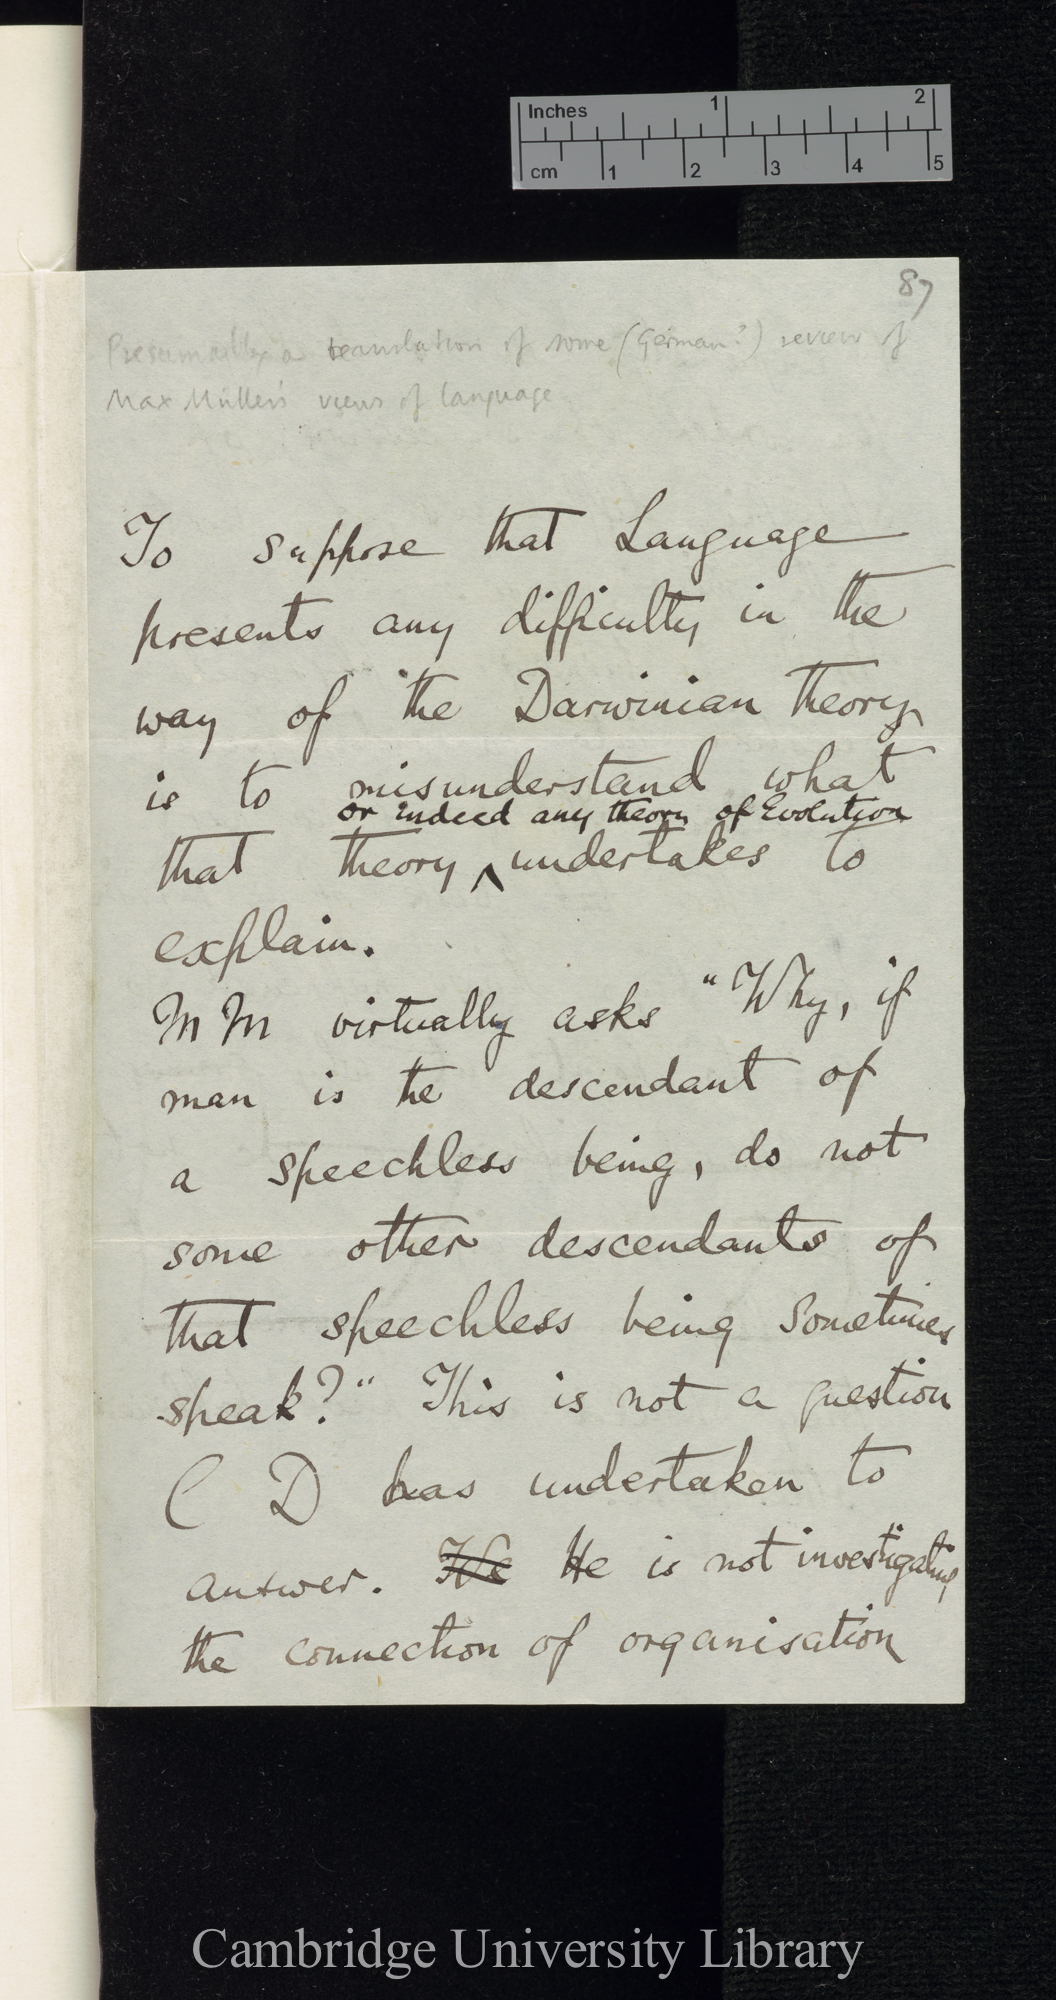 Inches 1 2
cm 1 2 3 4 5
87
Presumably a translation of some (German?) review of
Max Müller's views of language
To suppose that Language
presents any difficulty in the
way of the Darwinian theory
is to misunderstand what
or indeed any theory of Evolution
that theory ^ undertakes to
explain.
M M virtually asks "Why, if
man is the descendant of
a speechless being, do not
some other descendants of
that speechless being sometimes
speak?" This is not a question
C D has undertaken to
answer. He He is not investigating
the connection of organisation
Cambridge University Library